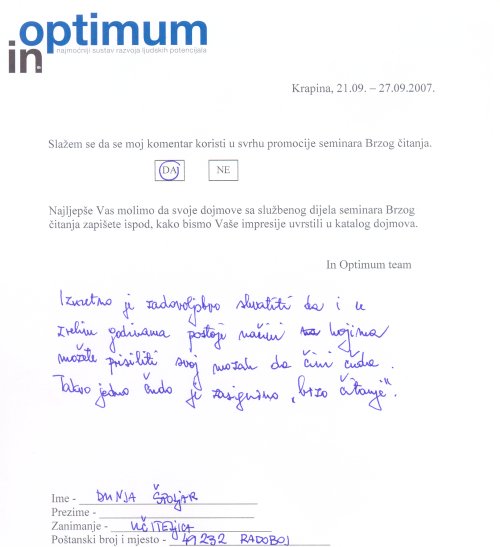 in optimum
najmoćniji sustav razvoja ljudskih potencijala
Krapina, 21.09. – 27.09.2007.
Slažem se da se moj komentar koristi u svrhu promocije seminara Brzog čitanja.
DA NE
Najljepše Vas molimo da svoje dojmove sa službenog dijela seminara Brzog
čitanja zapišete ispod, kako bismo Vaše impresije uvrstili u katalog dojmova.
In Optimum team
Izuzetno je zadovoljstvo shvatiti da i u
zrelim godinama postoje načini kojima
možete prisiliti svoj mozak da čini čuda.
Takvo jedno čudo je zasigurno „brzo čitanje".
Ime - DUNJA ŠPOLJAR
Prezime -
Zanimanje - UČITELJICA
Poštanski broj i mjesto - 49232 RADOBOJ